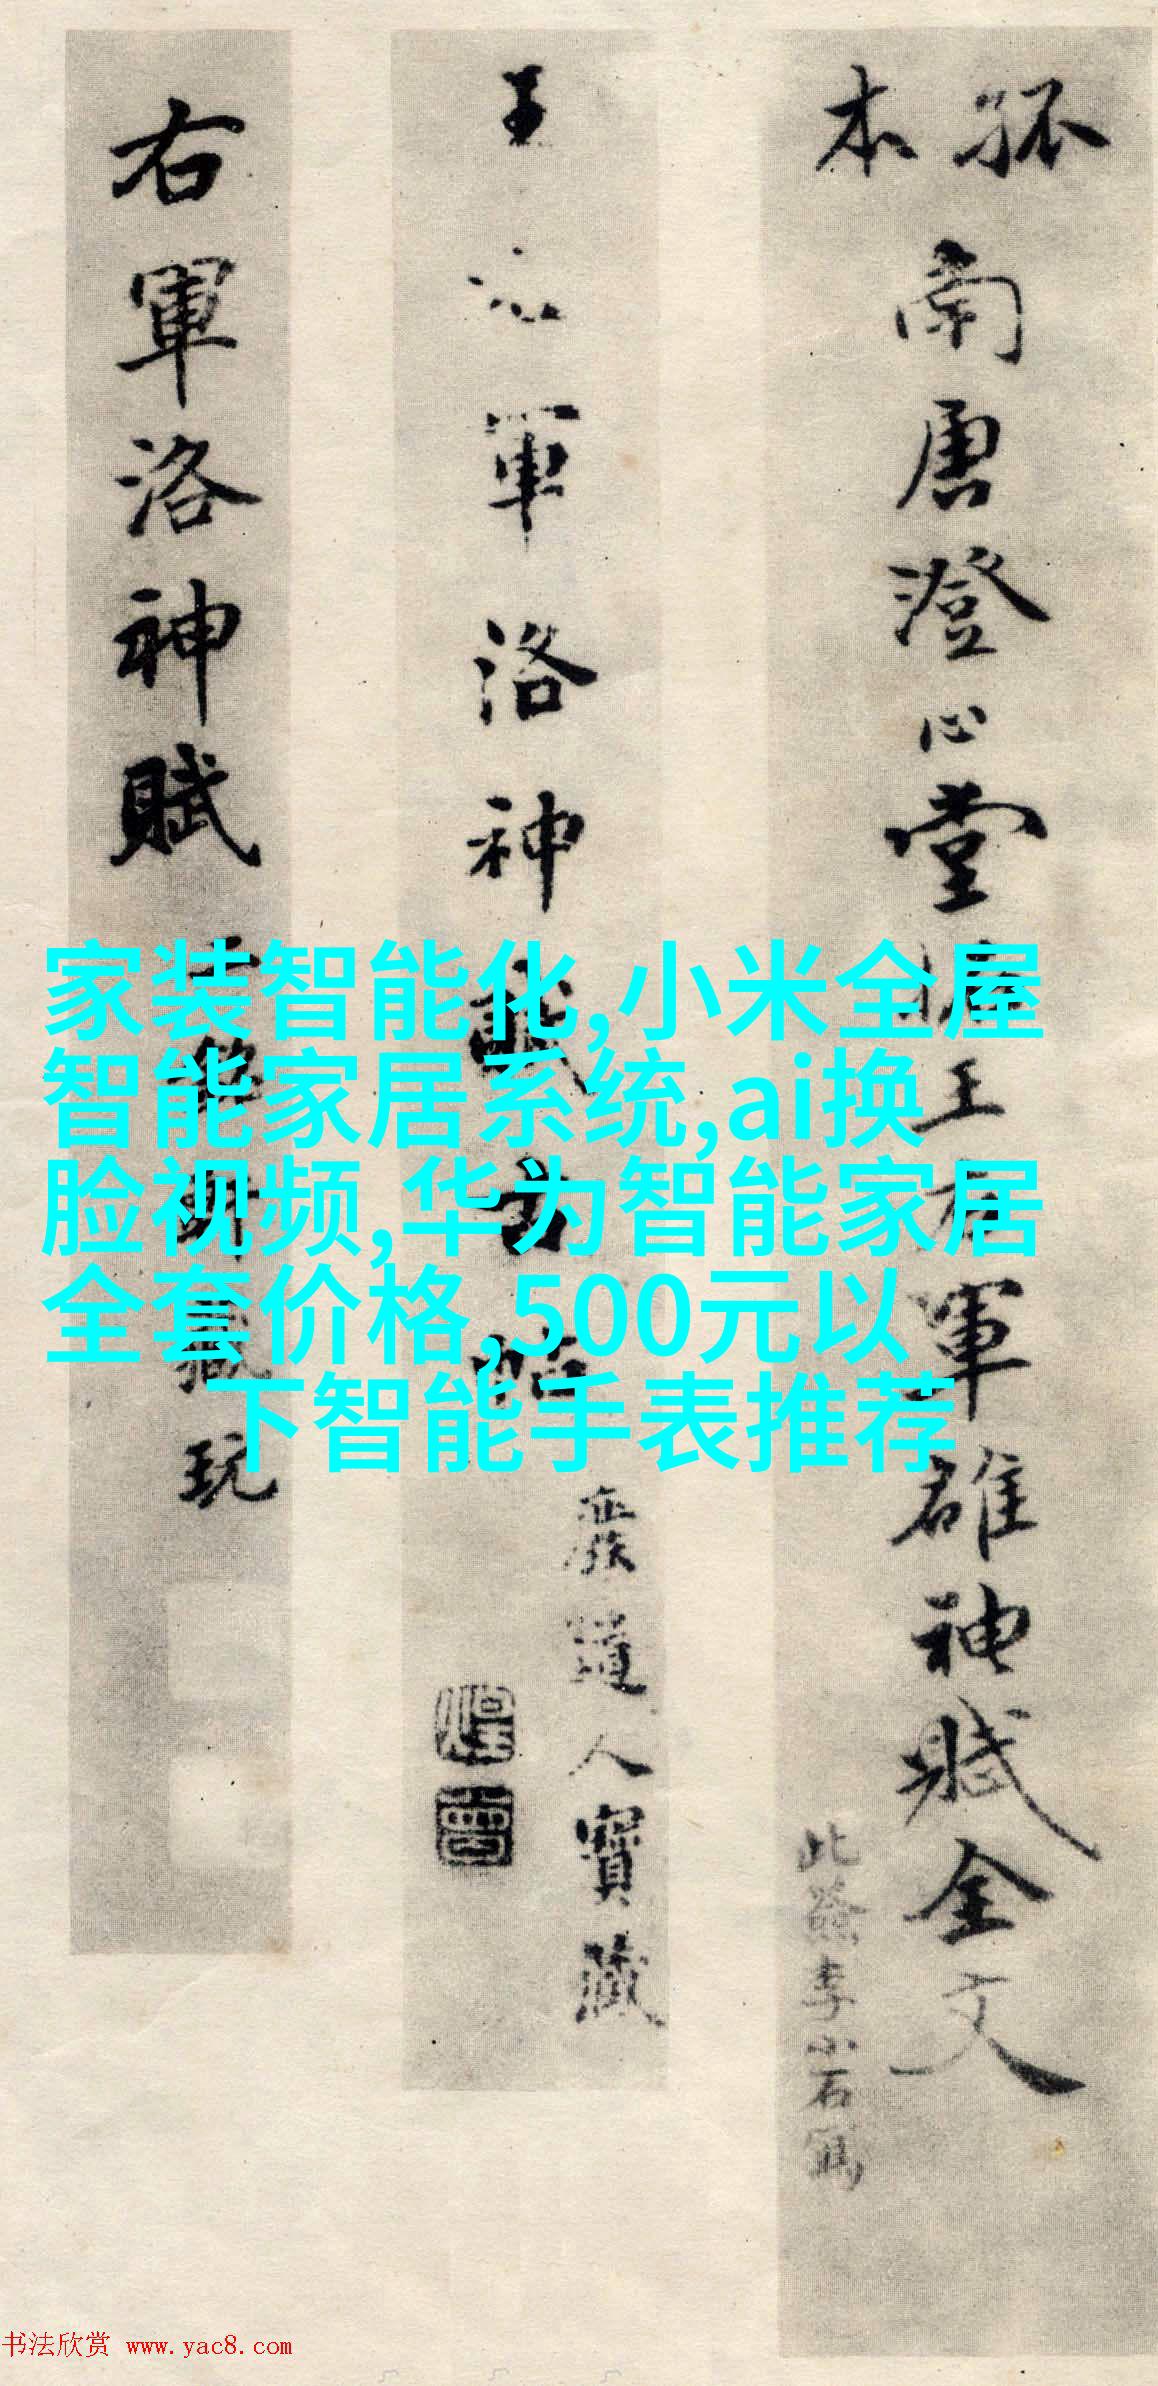 孤本
南唐澄心堂王右軍雒神賦全文
此簽李小石寫
王軍洛神賦古帖
道人寶藏
右軍洛神賦
藏玩
家装智能化,小米全屋
智能家居系统,ai换
脸视频,华为智能家居
全套价格,500元以
下智能手表推荐
书法欣赏 www.yac8.com